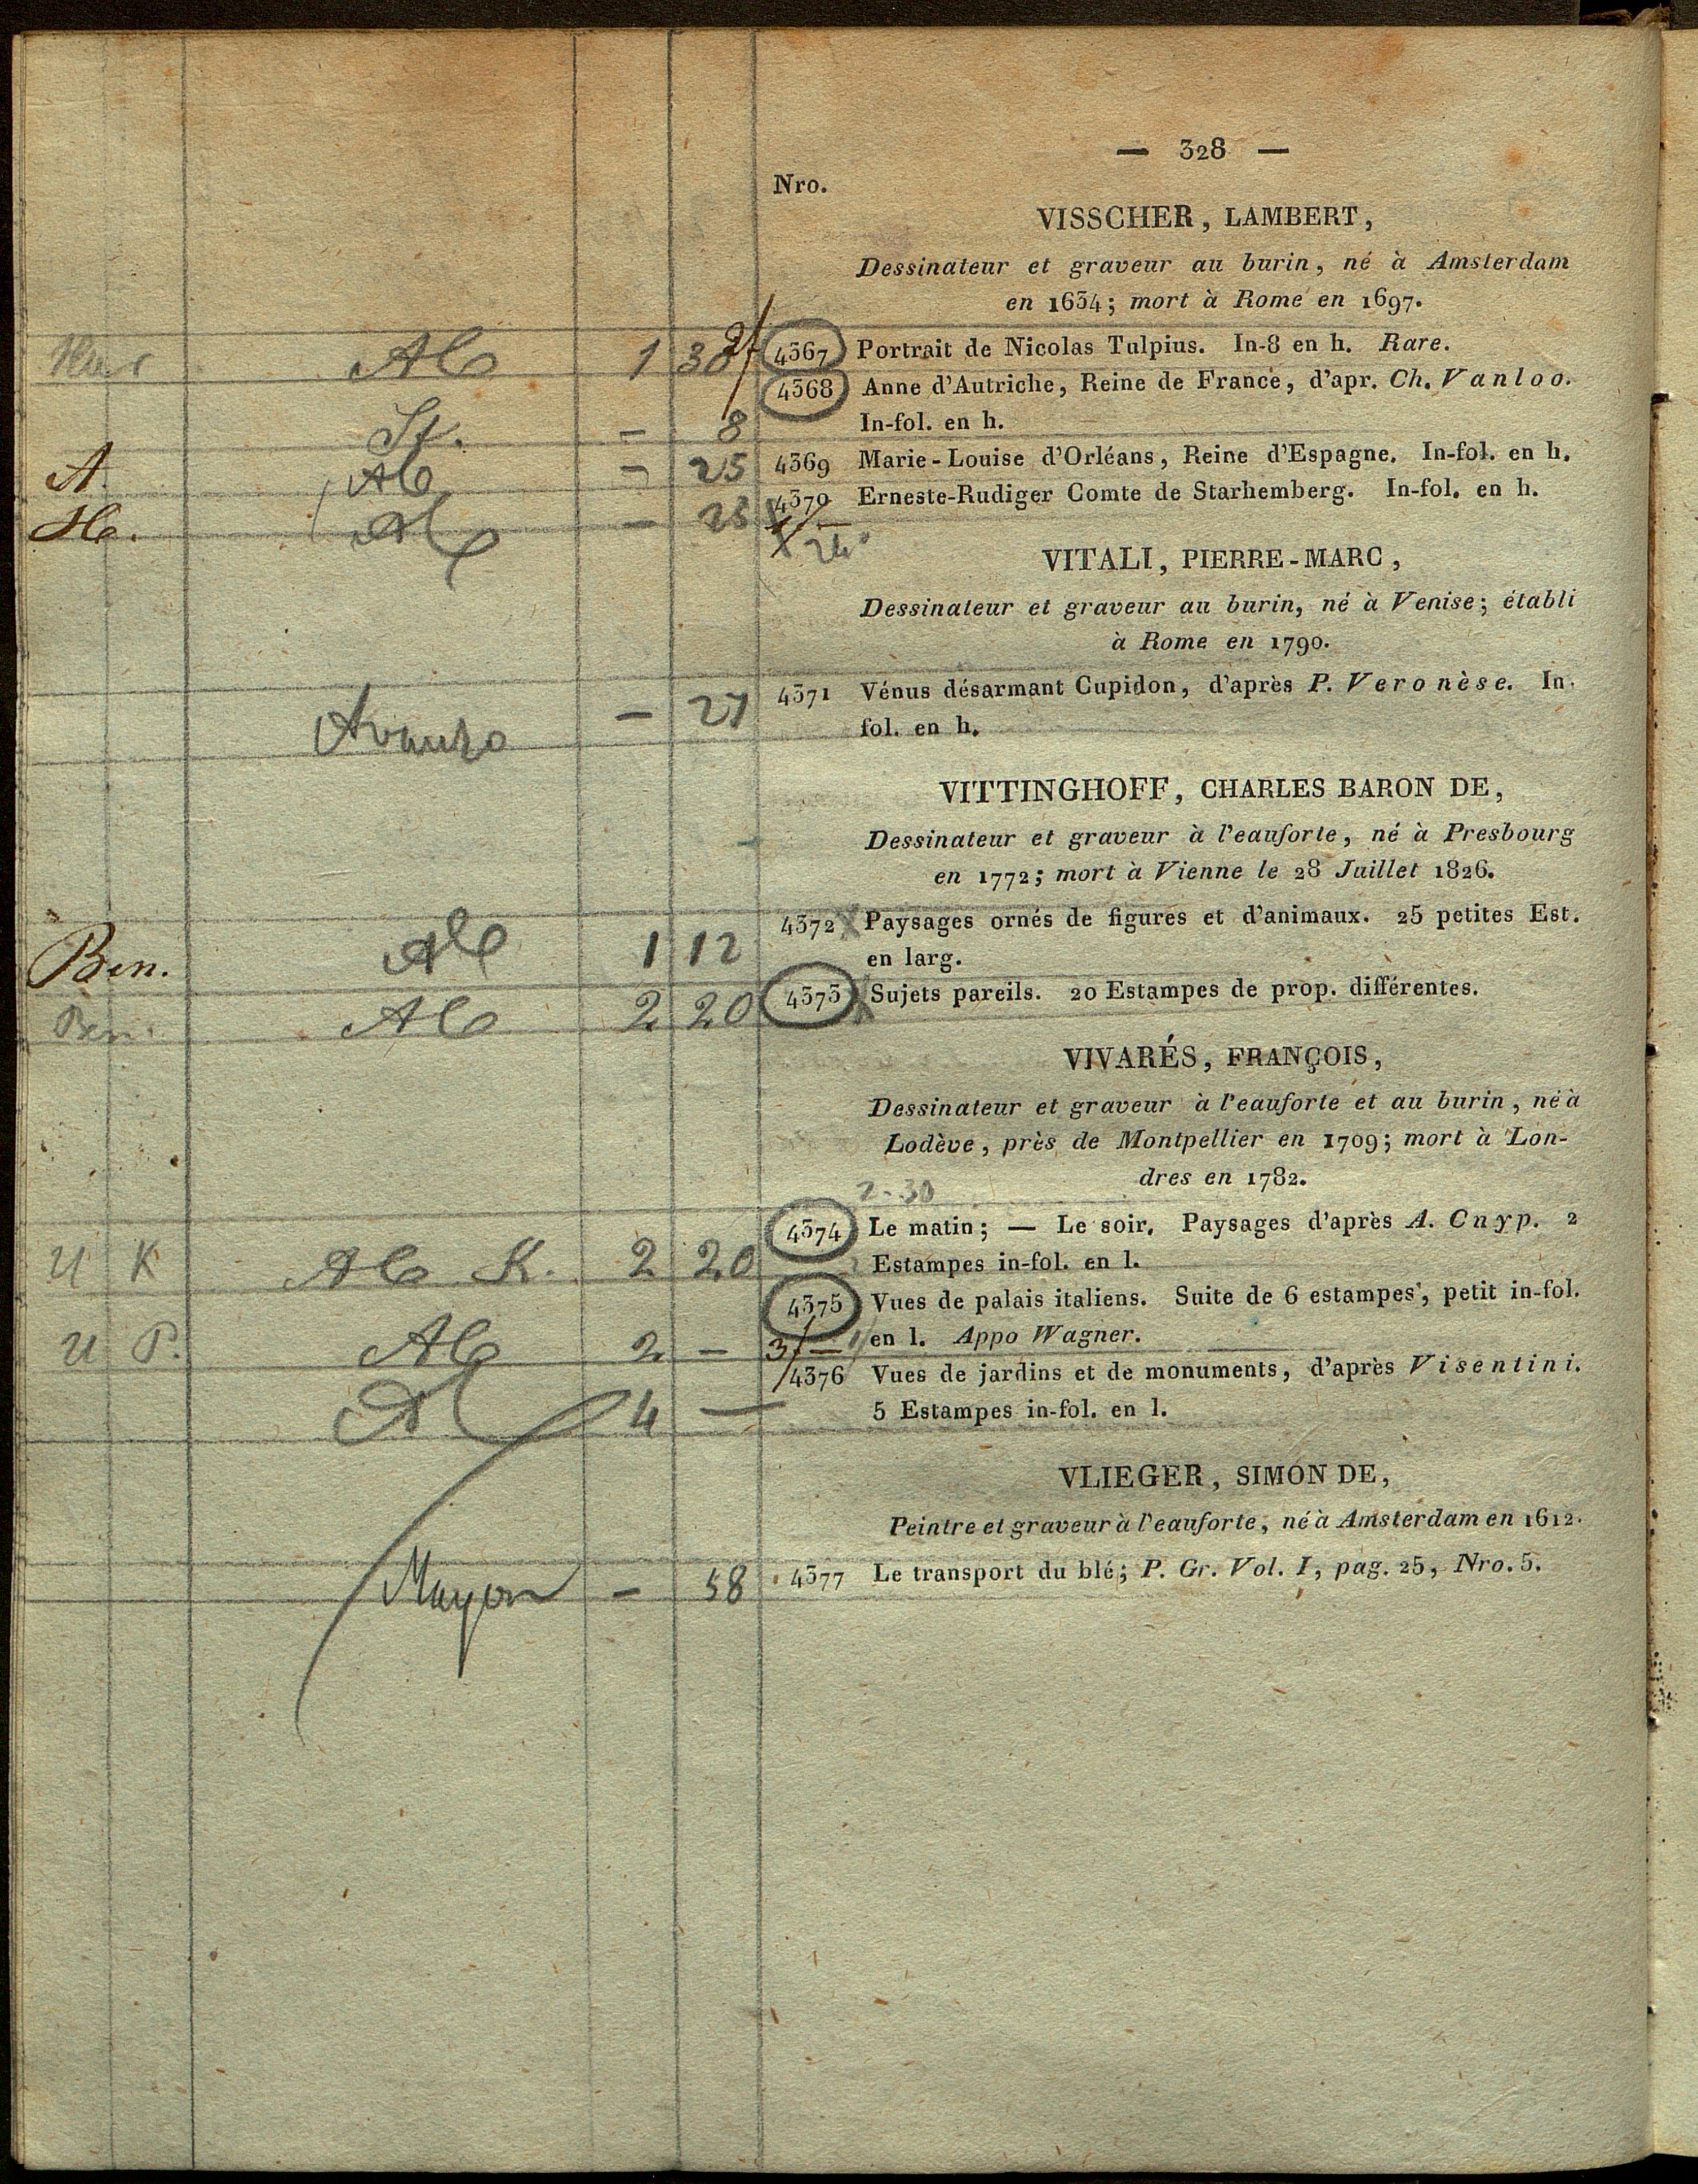 — 328 —
Nro.
VISSCHER, LAMBERT,
Dessinateur et graveur au burin, né à Amsterdam
en 1634; mort à Rome en 1697.
Ab 1 30 4367 Portrait de Nicolas Tulpius. In-8 en h. Rare.
4368 Anne d'Autriche, Reine de France, d'apr. Ch. Vanloo.
St. – 8 In-fol. en h.
A. Ab – 25 4369 Marie-Louise d'Orléans, Reine d'Espagne. In-fol. en h.
4370 Erneste-Rudiger Comte de Starhemberg. In-fol. en h.
VITALI, PIERRE-MARC,
Dessinateur et graveur au burin, né à Venise; établi
à Rome en 1790.
4371 Vénus désarmant Cupidon, d'après P. Veronèse. In-
– 27 fol. en h.
VITTINGHOFF, CHARLES BARON DE,
Dessinateur et graveur à l'eauforte, né à Presbourg
en 1772; mort à Vienne le 28 Juillet 1826.
4372 Paysages ornés de figures et d'animaux. 25 petites Est.
Ben. Ab 1 12 en larg.
Ben. Ab 2 20 4373 Sujets pareils. 20 Estampes de prop. différentes.
VIVARÉS, FRANÇOIS,
Dessinateur et graveur à l'eauforte et au burin, né à
Lodève, près de Montpellier en 1709; mort à Lon-
dres en 1782.
2-30
4374 Le matin; — Le soir. Paysages d'après A. Cuyp. 2
U K Ab K. 2 20 Estampes in-fol. en l.
4375 Vues de palais italiens. Suite de 6 estampes, petit in-fol.
U P. Ab 2 – 3/– en l. Appo Wagner.
4376 Vues de jardins et de monuments, d'après Visentini.
Ab 4 — 5 Estampes in-fol. en l.
VLIEGER, SIMON DE,
Peintre et graveur à l'eauforte, né à Amsterdam en 1612.
– 58 4377 Le transport du blé; P. Gr. Vol. I, pag. 25, Nro. 5.